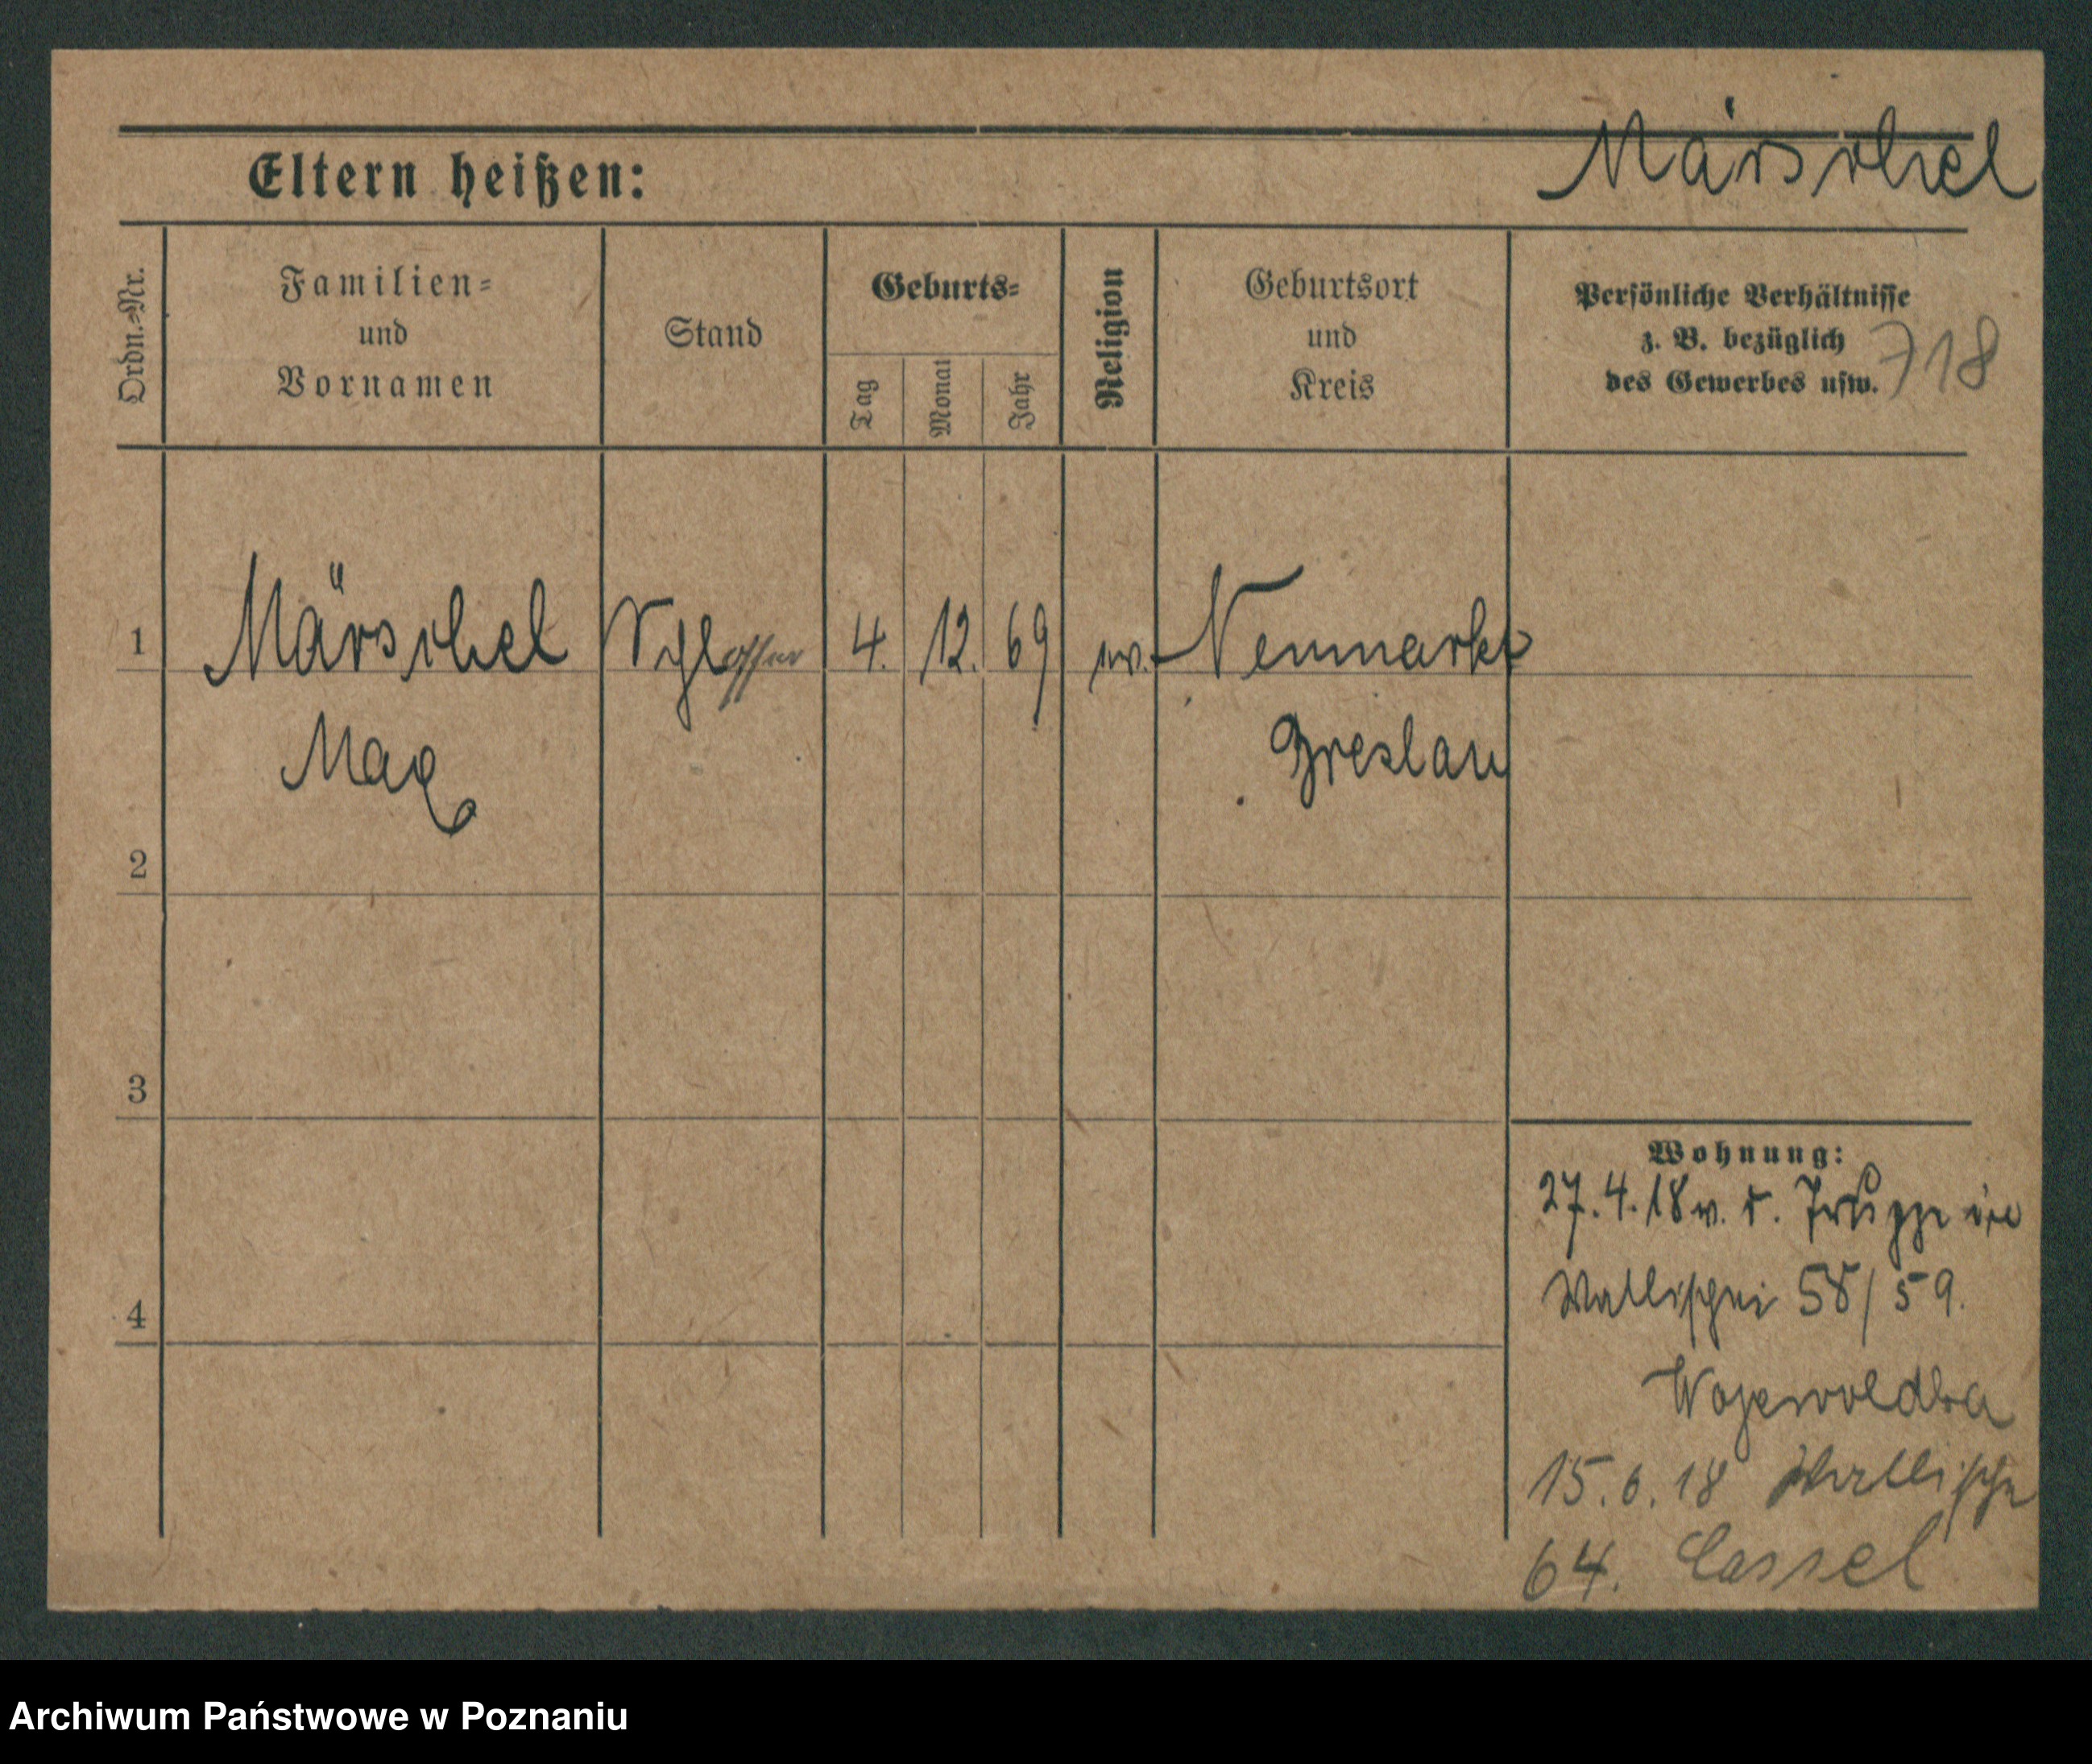 Märschel
Eltern heißen:
Ordn.-Nr.
Familien-
und
Vornamen
Stand
Geburts-
Tag
Monat
Jahr
Religion
Geburtsort
und
Kreis
Persönliche Verhältnisse
z. B. bezüglich
des Gewerbes usw.
718
1
Märschel
4.
12.
69
ev.
Neumarkt
Max
Breslau
2
3
4
Wohnung:
27.4.18 v. d. Truppe
Wallischei 58/59.
15.6.18 Wallische
64. Cassel
Archiwum Państwowe w Poznaniu